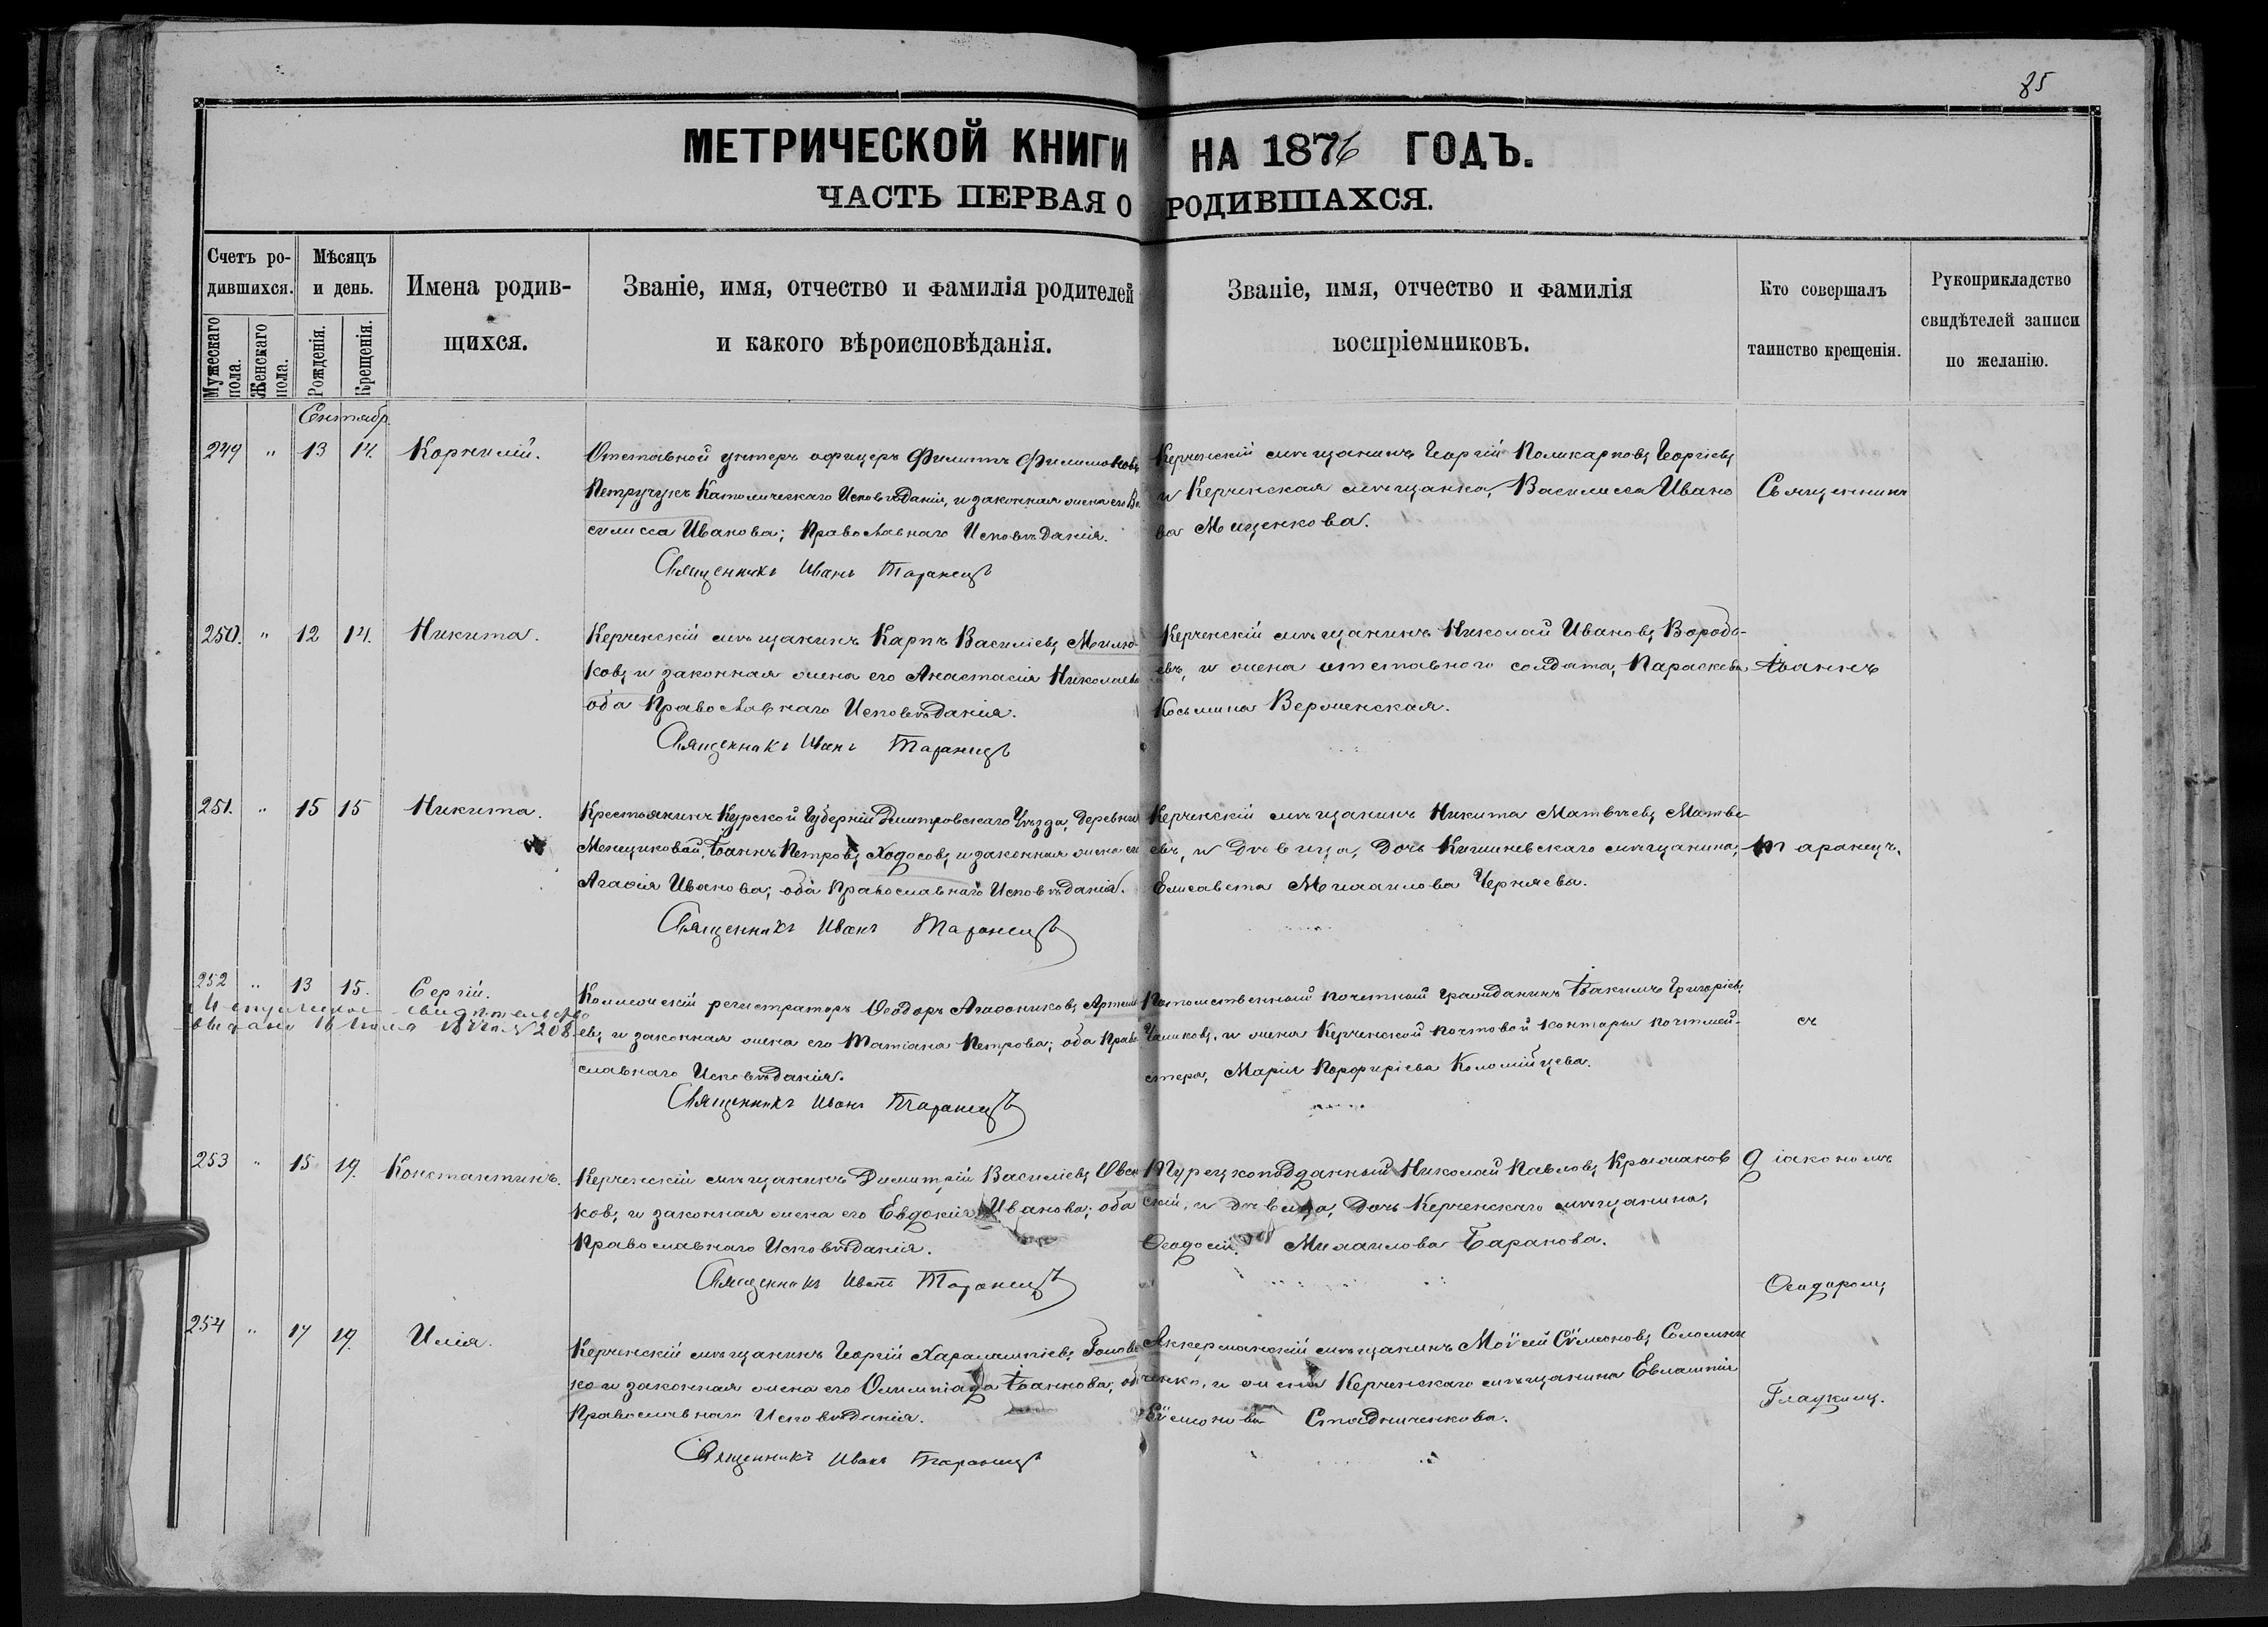 85
МЕТРИЧЕСКОЙ КНИГИ НА 1876 ГОДЪ.
ЧАСТЬ ПЕРВАЯ О РОДИВШАХСЯ.
Счетъ ро-
дившихся.
Мужескаго пола.
Женскаго пола.
Мѣсяцъ
и день.
Рожденія.
Крещенія.
Имена родив-
щихся.
Званіе, имя, отчество и фамилія родителей
и какого вѣроисповѣданія.
Званіе, имя, отчество и фамилія
воспріемниковъ.
Кто совершалъ
таинство крещенія.
Рукоприкладство
свидѣтелей записи
по желанію.
Сентябр.
249 " 13 14. Корнилій.
Отставной унтеръ офицеръ Филиппъ Филимоновъ
Петручукъ Католическаго Исповѣданія, и законная жена его Ва
силисса Иванова; Православнаго Исповѣданія.
Священникъ Иванъ Таранецъ
Керченскій мѣщанинъ Георгій Поликарповъ Георгіевъ
и Керченская мѣщанка, Василисса Ивано
ва Мищенкова.
Священникъ
250. " 12 14. Никита.
Керченскій мѣщанинъ Карпъ Василіевъ Милю-
ковъ и законная жена его Анастасія Николаева
оба Православнаго Исповѣданія.
Священникъ Иванъ Таранецъ
Керченскій мѣщанинъ Николай Ивановъ Вородо-
евъ, и жена отставного солдата, Параскева
Косьмина Верженская.
Іоаннъ
251. " 15 15 Никита.
Крестьянинъ Курской Губерніи Дмитровскаго Уѣзда, деревни
Менщиковой, Іоаннъ Петровъ Ходосовъ и законная жена его
Агафія Иванова; оба Православнаго Исповѣданія.
Священникъ Иванъ Таранецъ
Керченскій мѣщанинъ Никита Матвѣевъ Матве-
евъ, и дѣвица, дочь Кишиневскаго мѣщанина,
Елисавета Михаилова Черняева.
Таранецъ.
252 " 13 15. Сергій.
свидѣтельство
выдано 16 Июля № 208.
Коллежскій регистраторъ Ѳеодоръ Агафониковъ Артемь
евъ и законная жена его Татіана Петрова; оба Право
славнаго Исповѣданія.
Священникъ Иванъ Таранецъ
Потомственный почетный гражданинъ Іоакимъ Григоріевъ
и жена Керченской почтовой конторы почтмей-
стера, Марія Порфиріева Коломійцева.
съ
253 " 15 19. Константинъ.
Керченскій мѣщанинъ Димитрій Василіевъ Овсен
ковъ и законная жена его Евдокія Иванова; оба
Православнаго Исповѣданія.
Священникъ Иванъ Таранецъ
Турецкоподданный Николай Павловъ Крыжанов
скій, и дѣвица, дочь Керченскаго мѣщанина,
Ѳеодосія Михаилова Баранова.
Діакономъ
Ѳеодоромъ
254 " 17 19. Илія.
Керченскій мѣщанинъ Георгій Харалампіевъ Голове
ко и законная жена его Олимпіада Іоаннова; оба
Православнаго Исповѣданія.
Священникъ Иванъ Таранецъ
Аккерманскій мѣщанинъ Моѵсей Сѵмеоновъ Соломин
ченко, и жена Керченскаго мѣщанина Евлампія
Сѵмеонова Стадниченкова.
Глаукимъ.